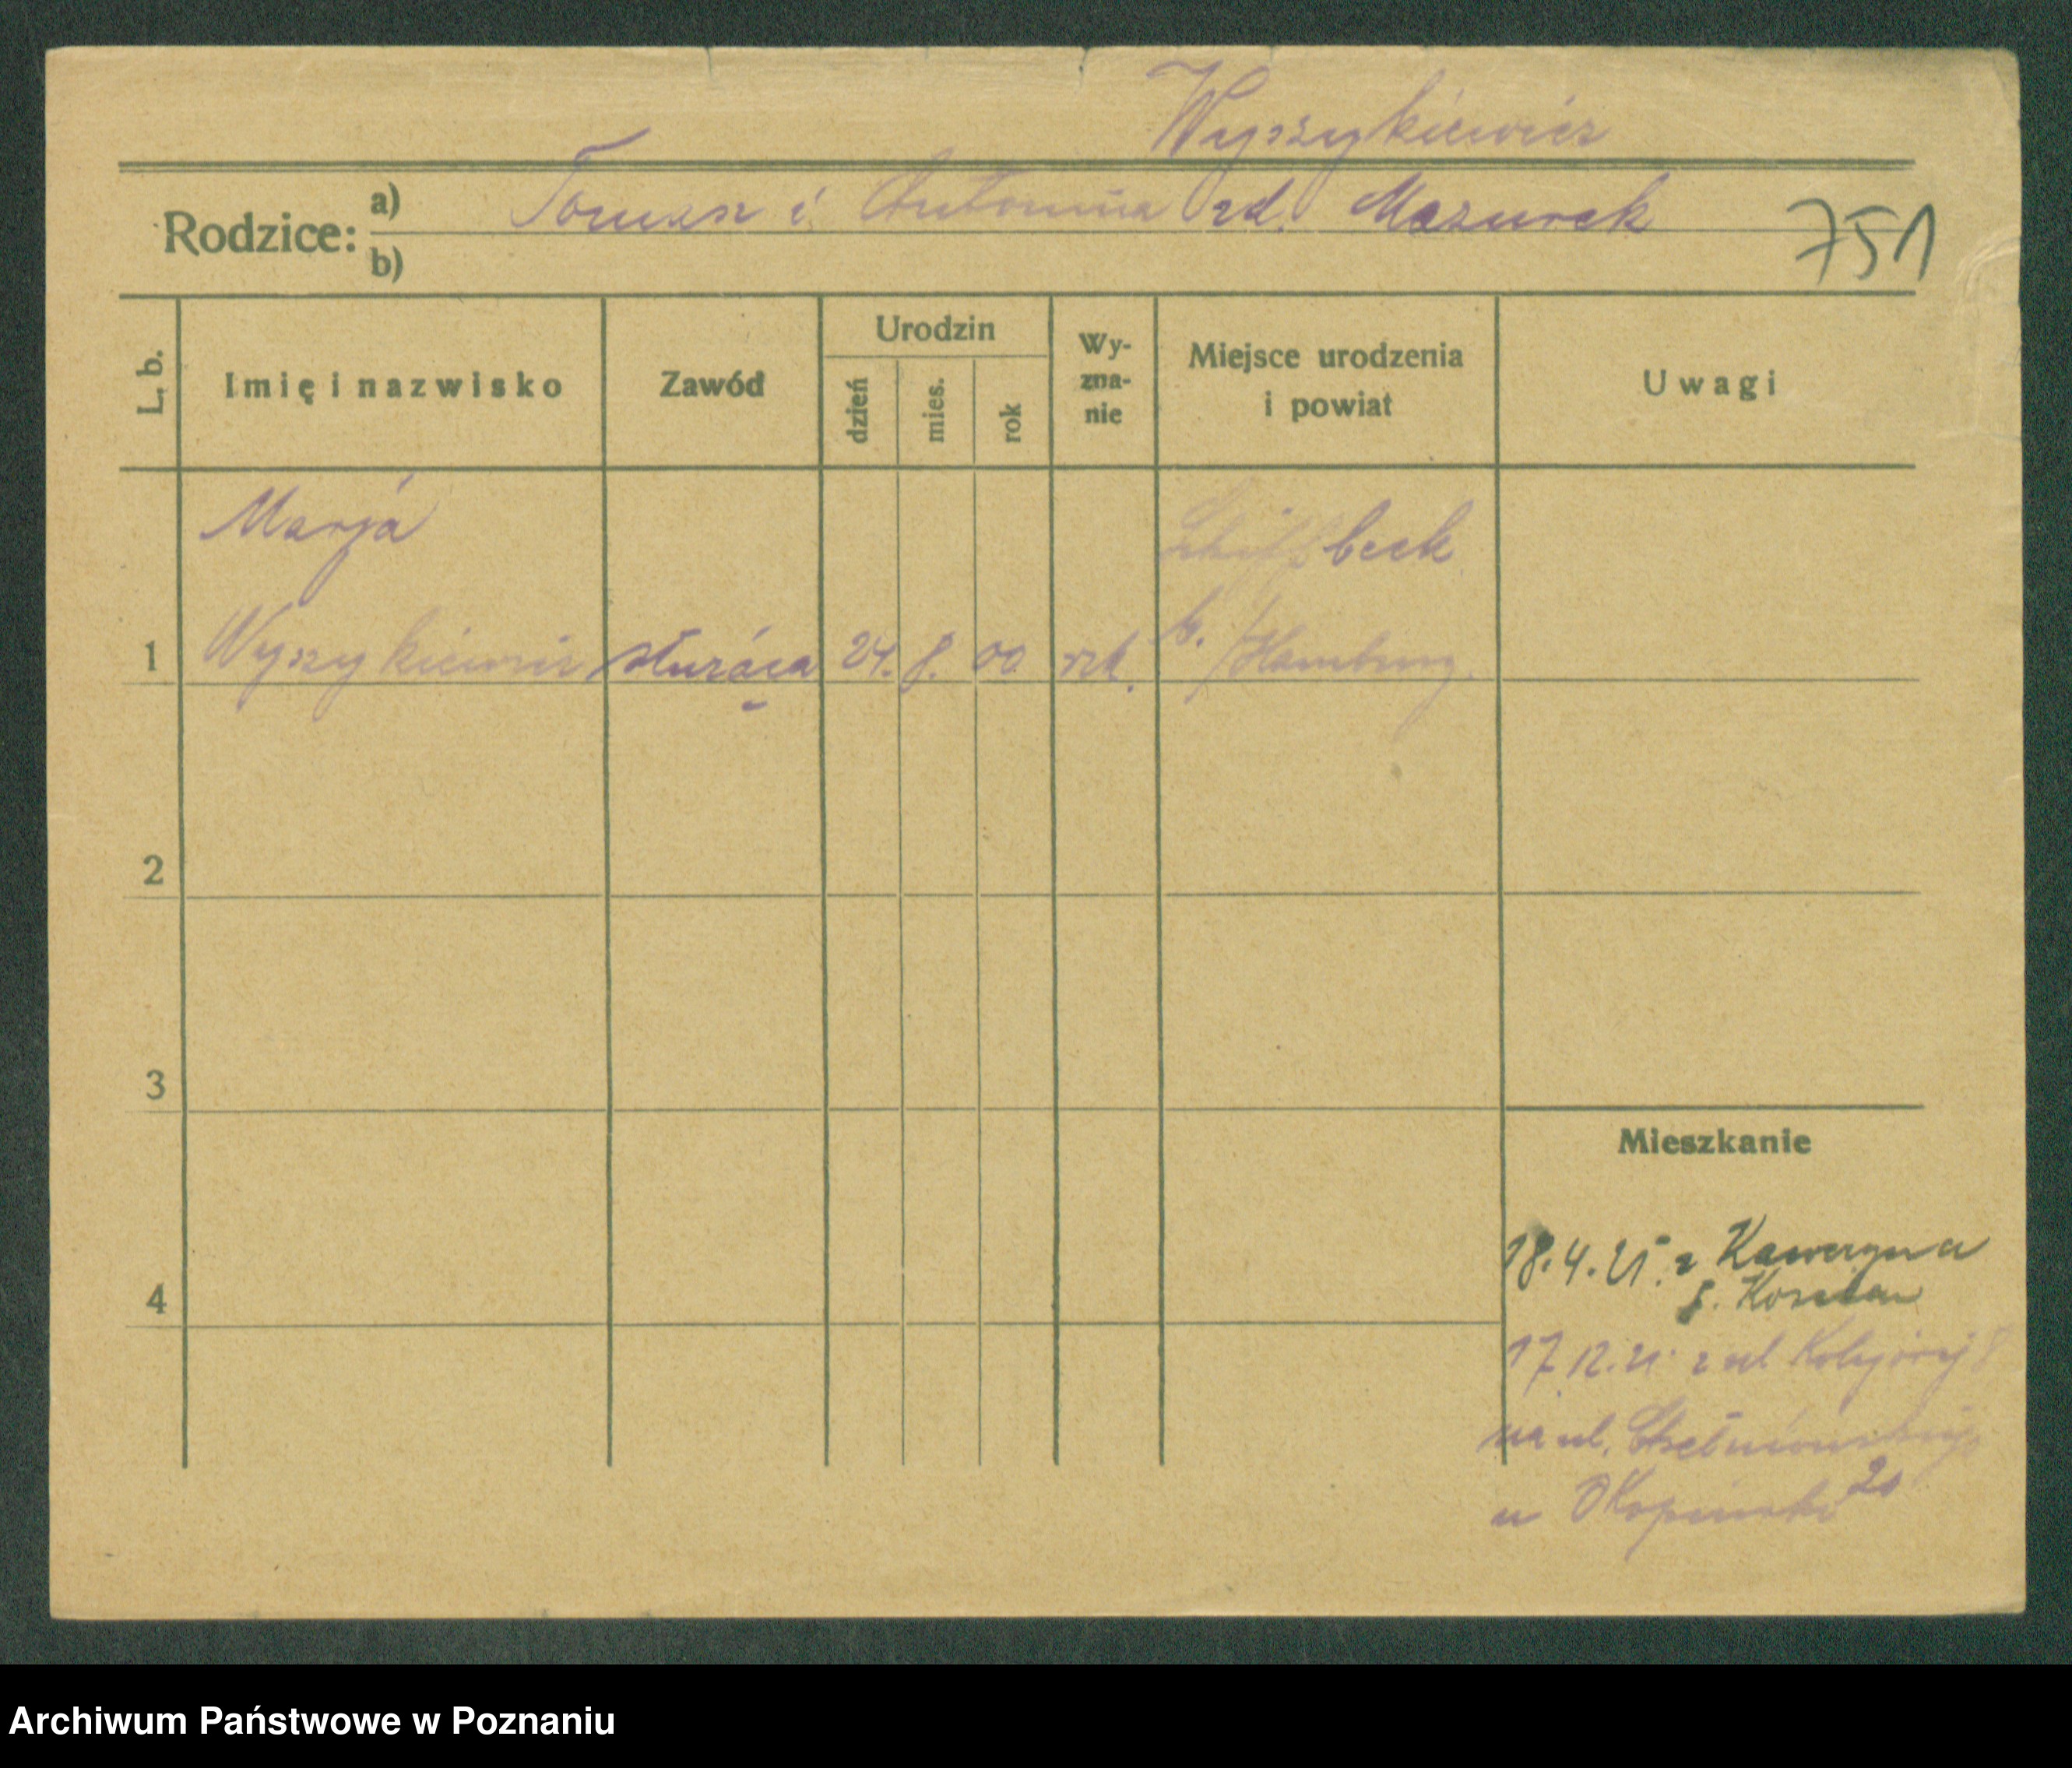 Wyszykiewicz
Rodzice: a) Tomasz i Antonina zd. Mazurek
b)
751
L. b.
Imię i nazwisko
Zawód
Urodzin
dzień
mies.
rok
Wy-
zna-
nie
Miejsce urodzenia
i powiat
Uwagi
Marja
Schiffbeck
1 Wyszykiewicz służąca 24. 8. 00 rzk. b./Hamburg.
2
3
Mieszkanie
4
18.4.21. z
17.12.21. z ul
na ul.
u 20
Archiwum Państwowe w Poznaniu